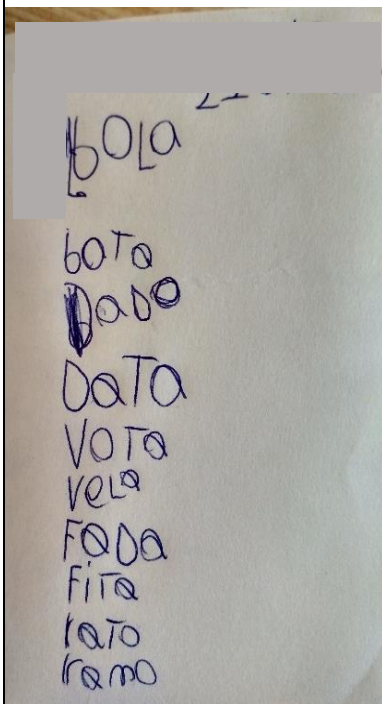 bOLa
boTa
DaDo
DaTa
VOTa
veLa
FaDa
FiTa
raTo
ramo